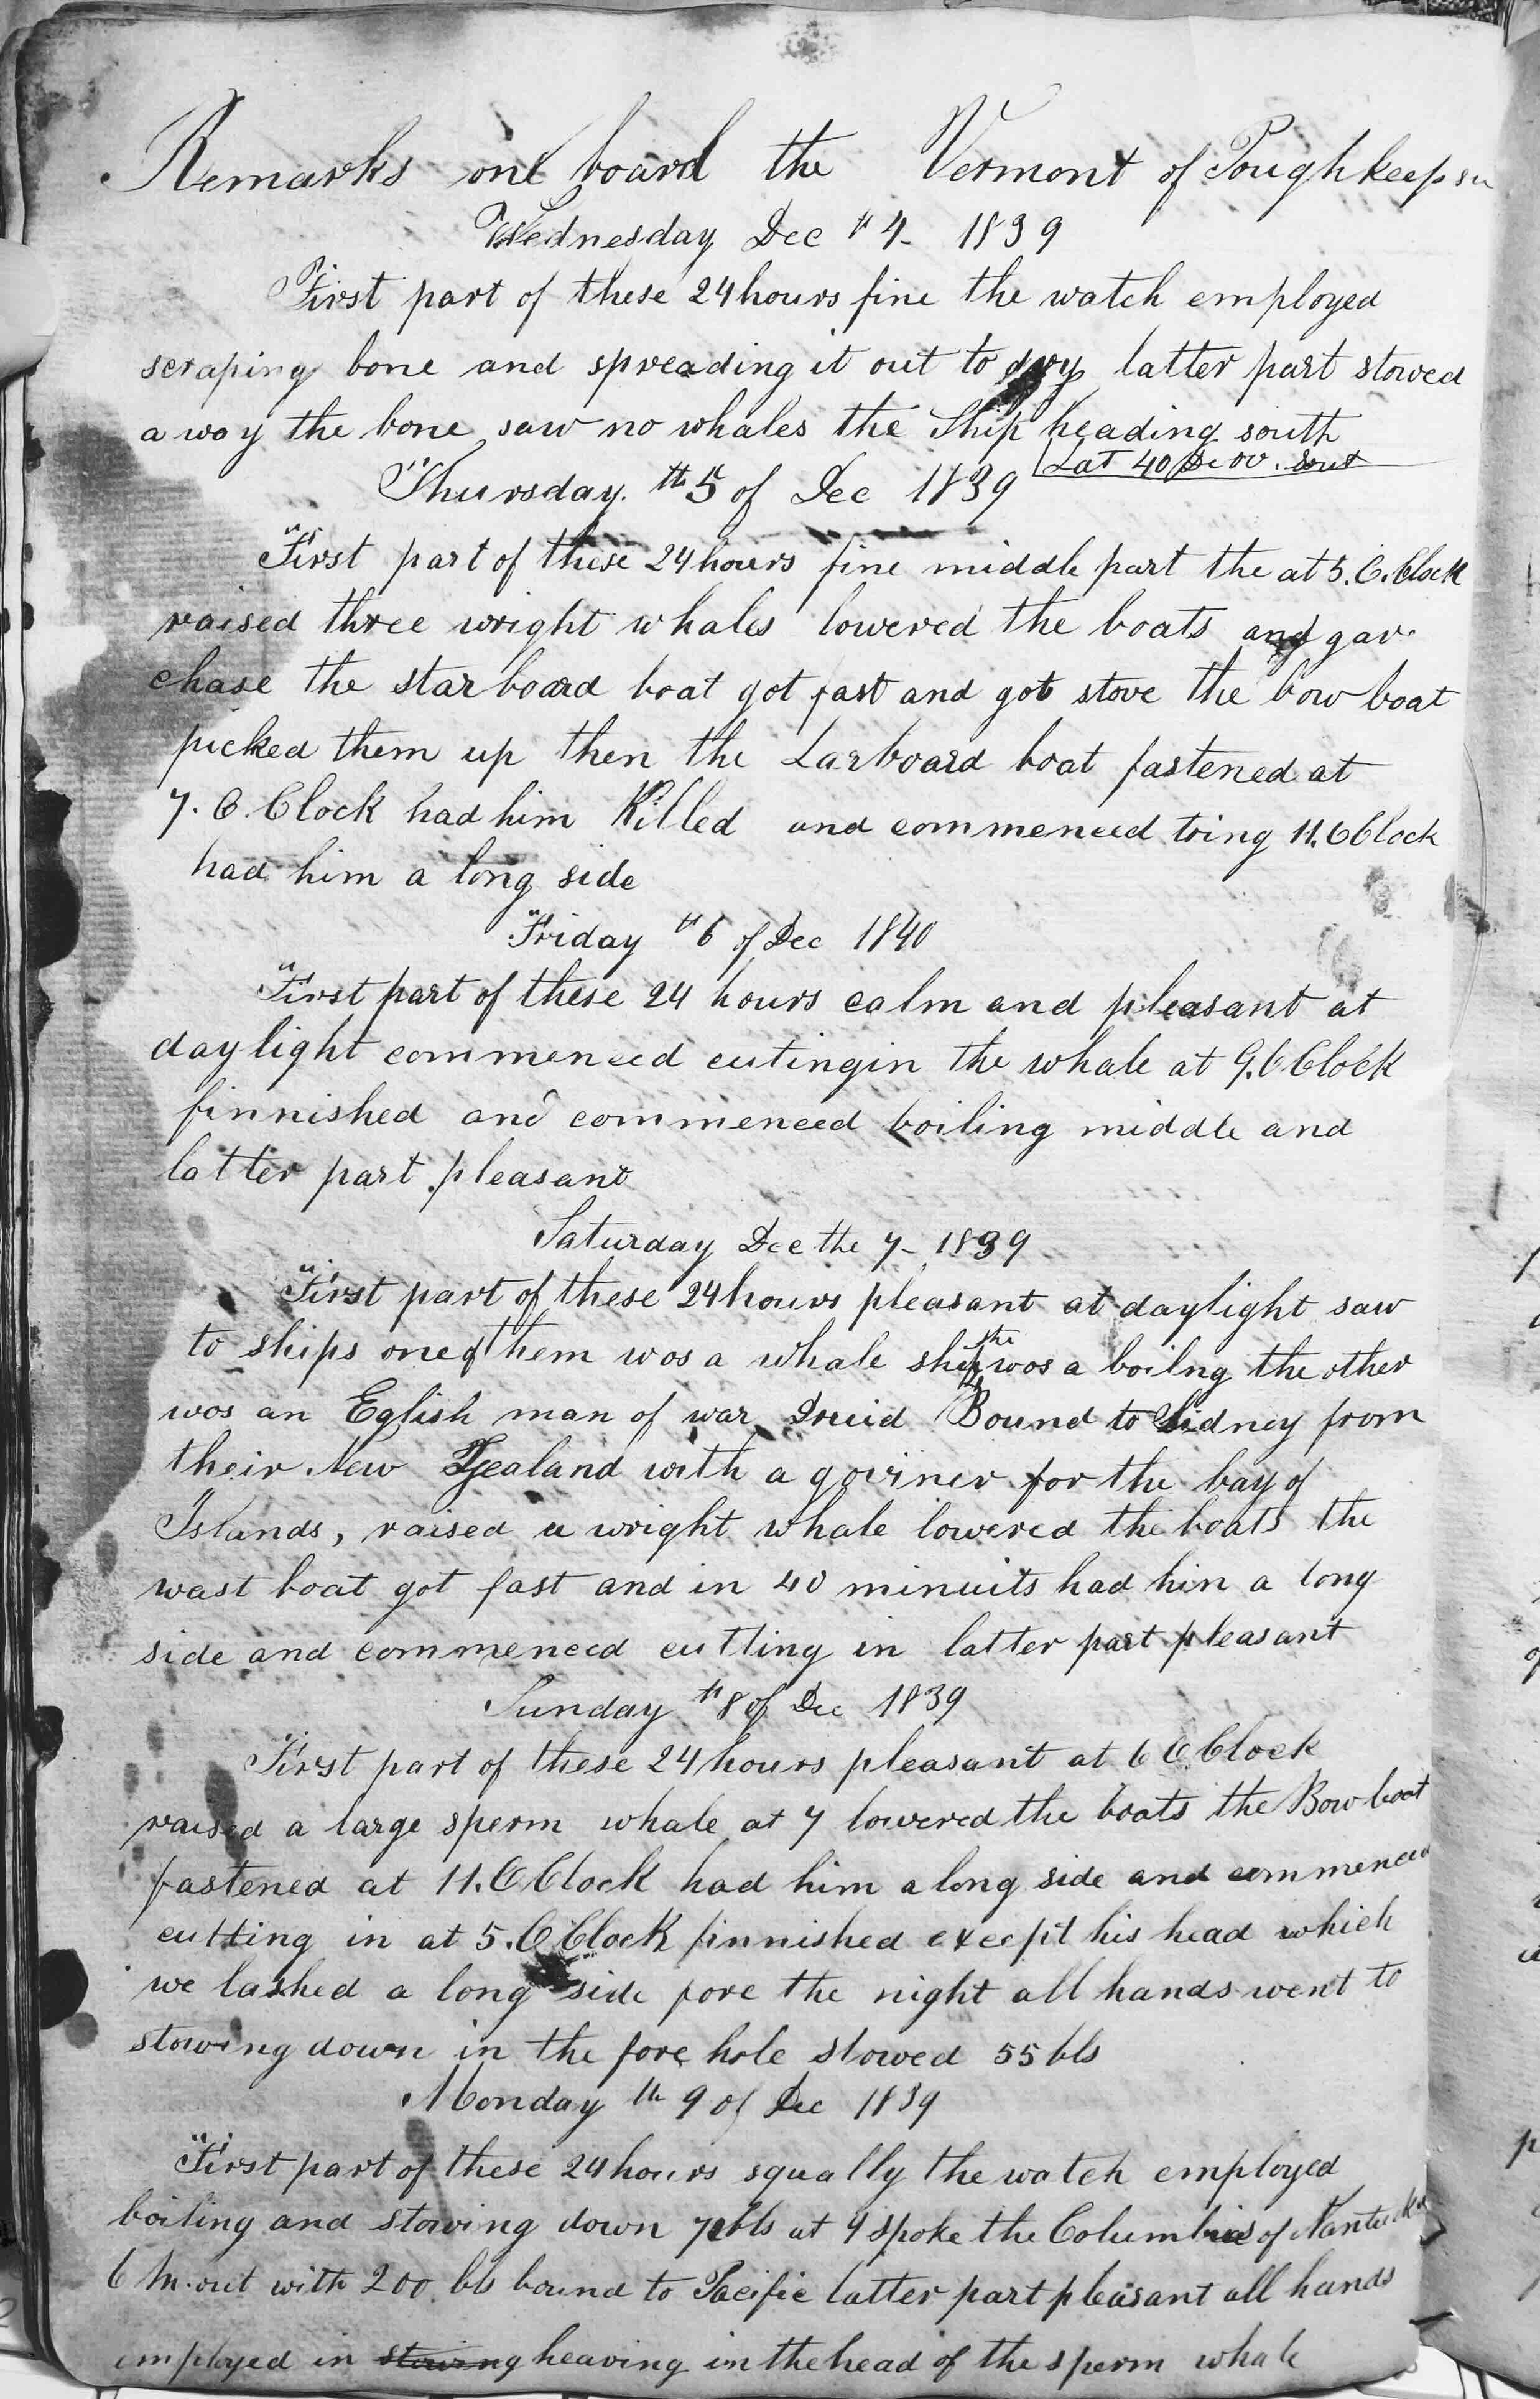 Remarks one board the Vermont of Poughkeepsie
Wednesday Dec th 4 - 1839
First part of these 24 hours fine the watch employed
scraping bone and spreading it out to dry latter part stowed
a way the bone saw no whales the Ship heading south
Lat 40 De 00. Sout
Thursday th 5 of Dec 1839
First part of these 24 hours fine middle part the at 5. O. Clock
raised three wright whales lowered the boats and gave
chase the starboard boat got fast and got stove the bow boat
picked them up then the Larboard boat fastened at
7. O. Clock had him Killed and commenced toing 11. O Clock
had him a long side
Friday th 6 of Dec 1840
First part of these 24 hours calm and pleasant at
daylight commenced cutingin the whale at 9. O Clock
finnished and commenced boiling middle and
latter part pleasant
Saturday Dec the 7 - 1839
First part of these 24 hours pleasant at daylight saw
to ships one of them wos a whale ship she wos a boilng the other
wos an Eglish man of war Druid Bound to Sidney from
their New Zealand with a goviner for the bay of
Islands, raised a wright whale lowered the boats the
wast boat got fast and in 40 minuits had him a long
side and commenced cutting in latter part pleasant
Sunday th 8 of Dec 1839
First part of these 24 hours pleasant at 6 O Clock
raised a large sperm whale at 7 lowered the boats the Bow boat
fastened at 11. O Clock had him along side and commenced
cutting in at 5. O Clock finnished except his head which
we lashed a long side fore the night all hands went to
stowing down in the fore hole stowed 55 bls
Monday th 9 of Dec 1839
First part of these 24 hours squally the watch employed
boiling and stowing down bls at 9 spoke the Columbus of Nantucket
6 M. out with 200 bls bound to Pacific latter part pleasant all hands
employed in stowing heaving in the head of the sperm whale